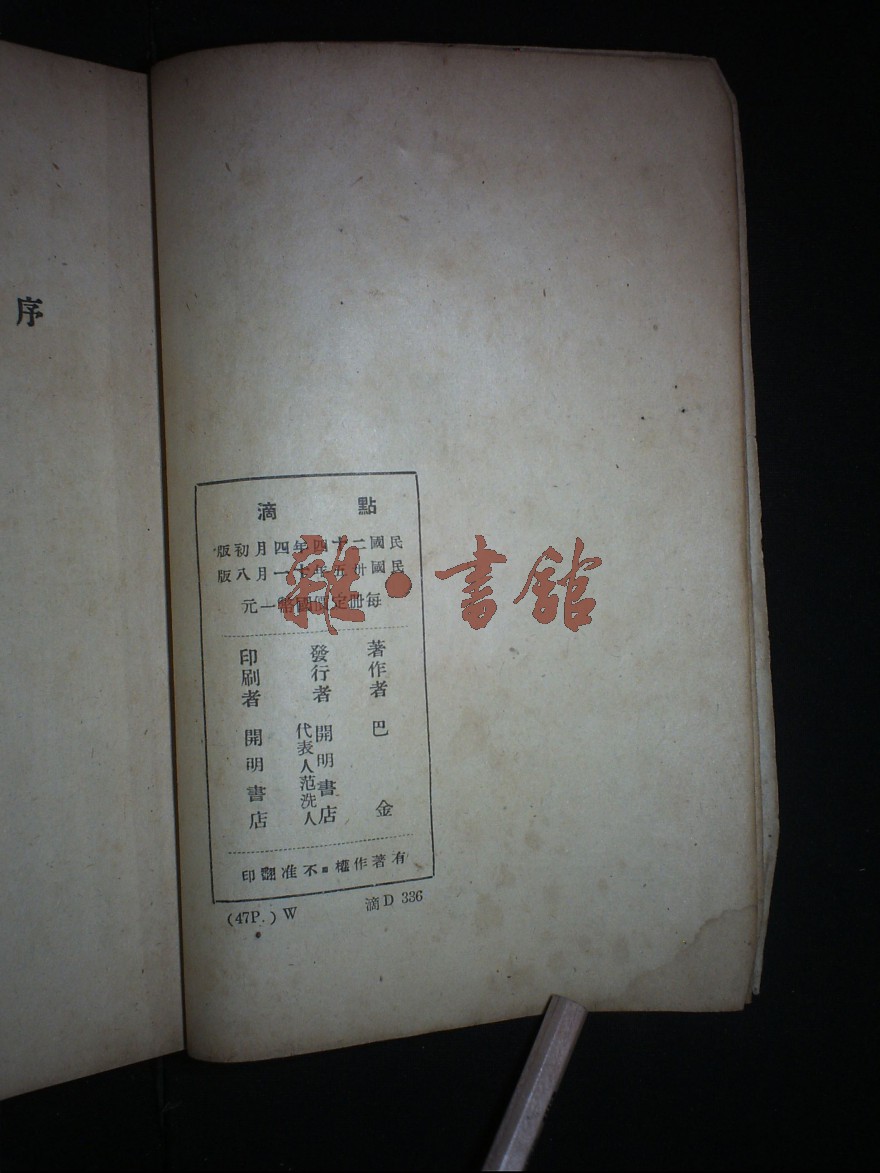 點滴
民國二十四年四月初版
民國卅五年十一月八版
每冊定價國幣一元
著作者 巴金
發行者 開明書店
代表人范洗人
印刷者 開明書店
有著作權■不准翻印
(47P.) W 滴D 336
序
雜·書館